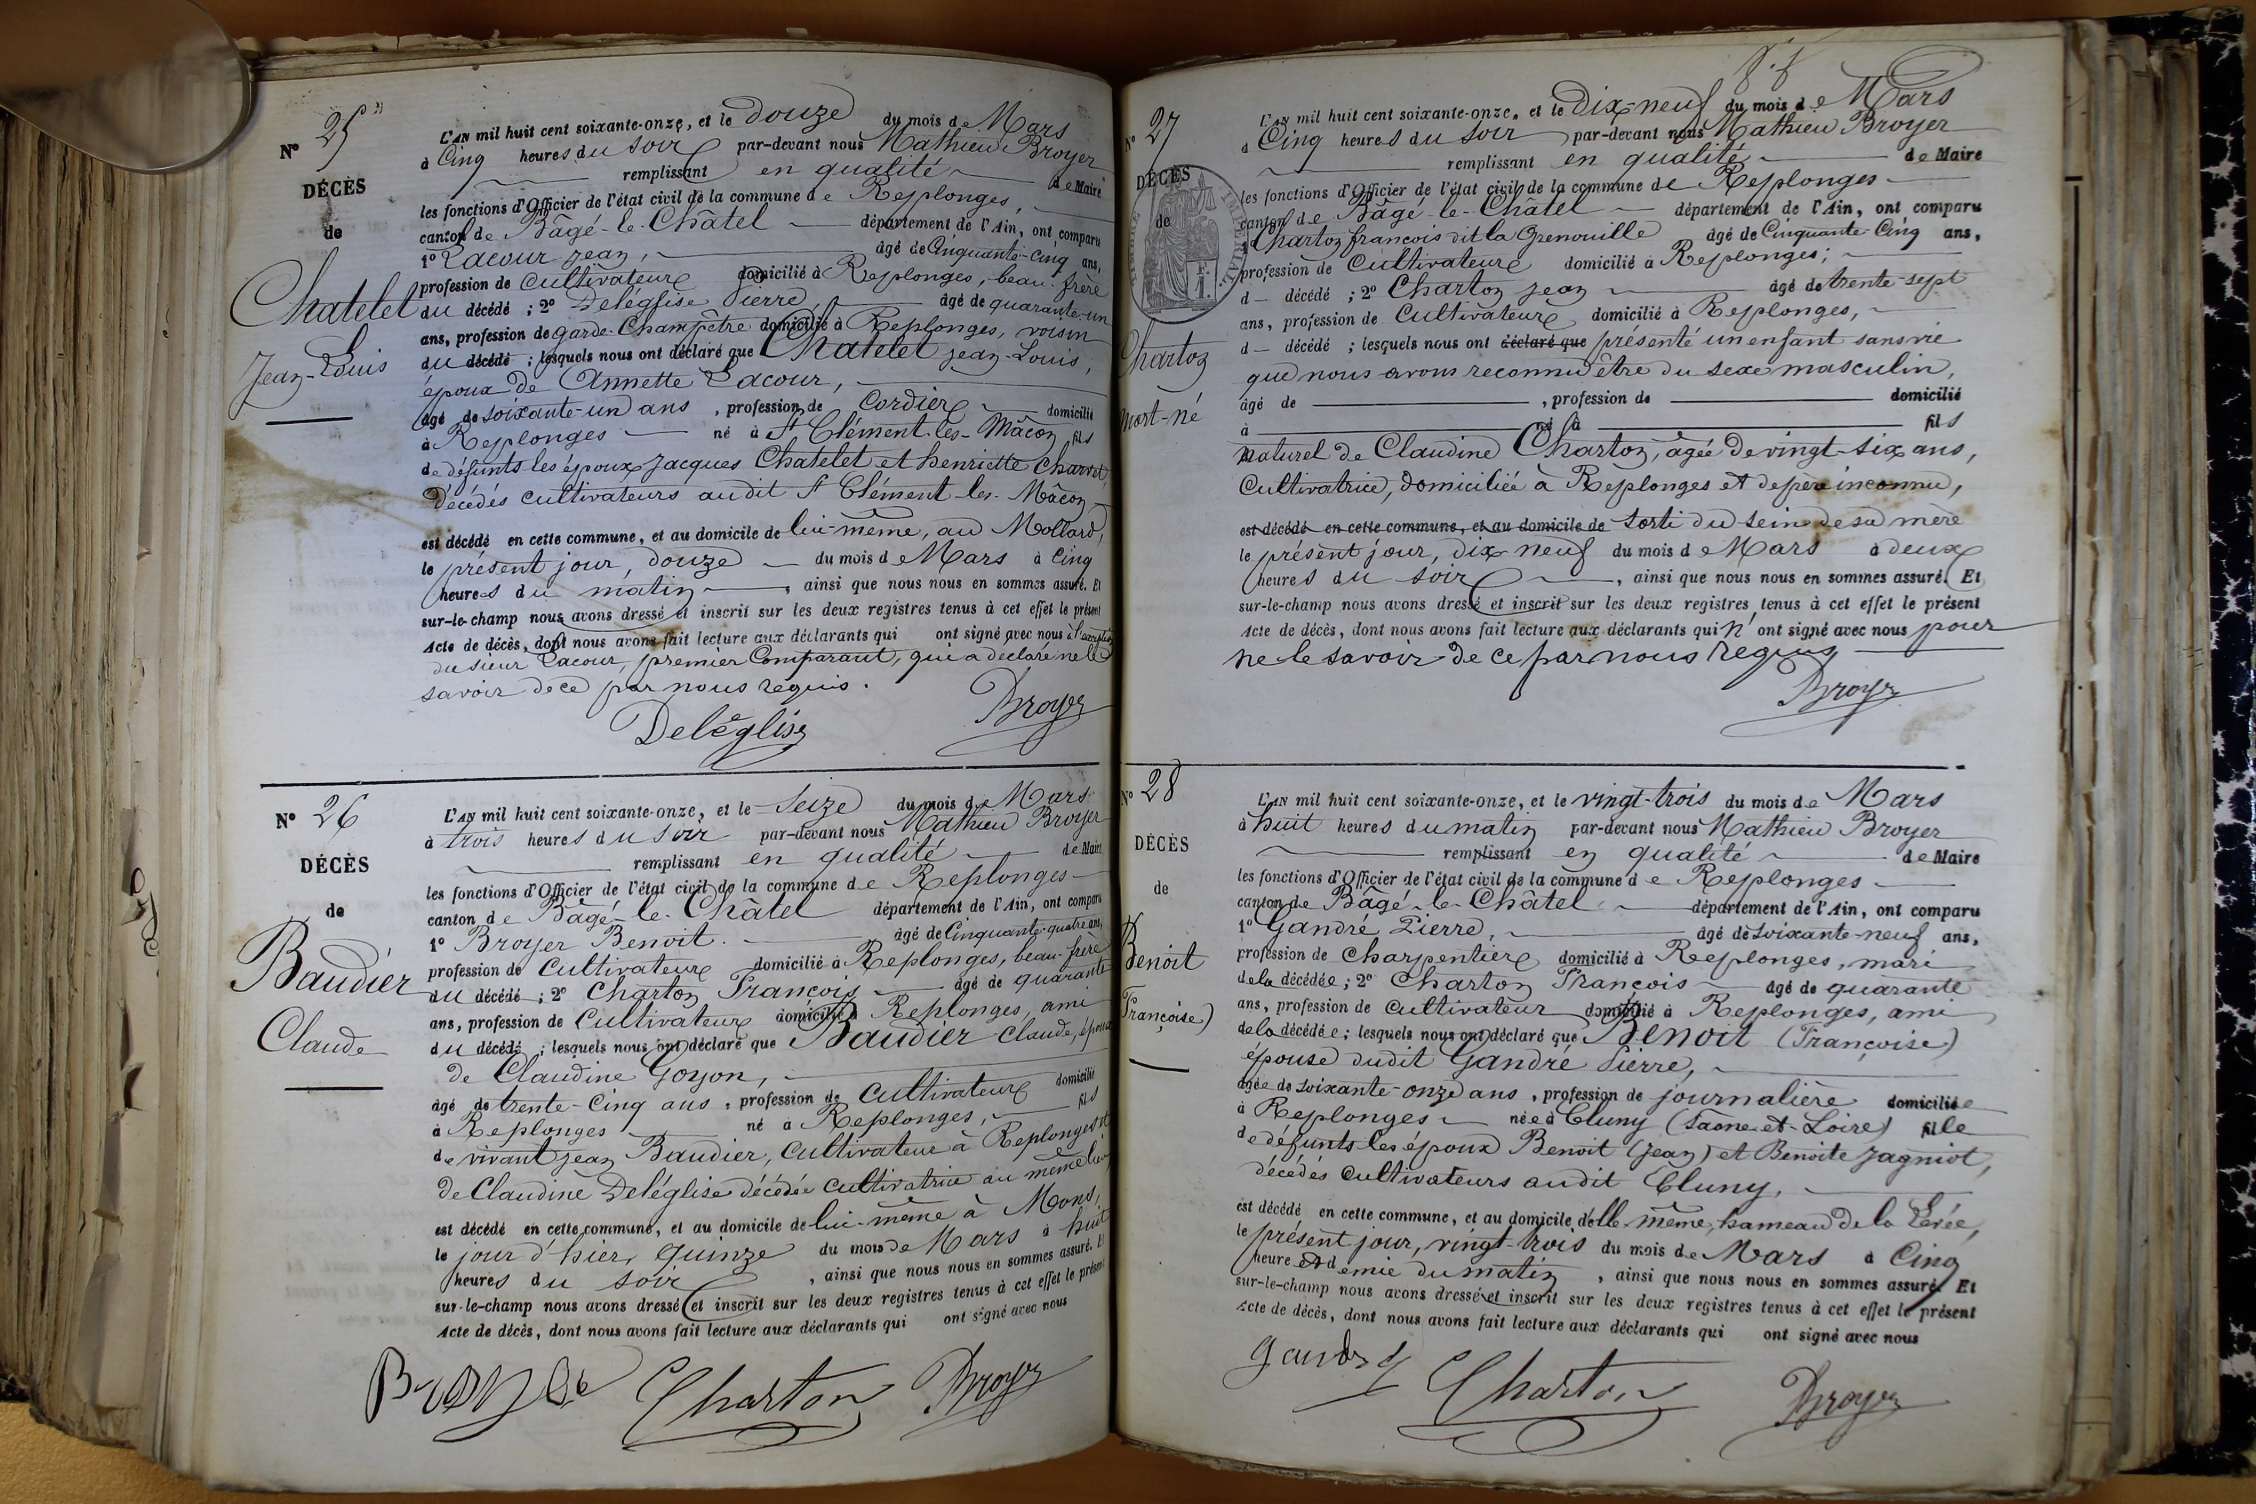 N° 25
DÉCÈS
de
Chatelet
Jean-Louis
L'AN mil huit cent soixante-onze, et le douze du mois de Mars
à Cinq heures du soir par-devant nous Mathieu Broyer
remplissant en qualité de Maire
les fonctions d'Officier de l'état civil de la commune de Replonges,
canton de Bâgé-le-Châtel département de l'Ain, ont comparu
1° Lacour jean, âgé de Cinquante-Cinq ans,
profession de Cultivateur domicilié à Replonges, beau-frère
du décédé ; 2° Deléglise Pierre, âgé de quarante-un
ans, profession de garde-Champêtre domicilié à Replonges, voisin
du décédé ; lesquels nous ont déclaré que Chatelet jean-Louis,
époux de Annette Lacour,
âgé de soixante-un ans, profession de Cordier domicilié
à Replonges né à St Clément-les-Mâcon fils
de défunts les époux Jacques Chatelet et henriette Charvet,
décédés cultivateurs audit St Clément-les-Mâcon,
est décédé en cette commune, et au domicile de lui-même, au Mollard,
le présent jour, douze du mois de Mars à Cinq
heures du matin, ainsi que nous nous en sommes assuré. Et
sur-le-champ nous avons dressé et inscrit sur les deux registres tenus à cet effet le présent
Acte de décès, dont nous avons fait lecture aux déclarants qui ont signé avec nous à l'exception
du sieur Lacour, premier Comparant, qui a déclaré ne le
savoir de ce par nous requis.
Deléglise Broyer
N° 26
DÉCÈS
de
Baudier
Claude
L'AN mil huit cent soixante-onze, et le Seize du mois de Mars
à trois heures du soir par-devant nous Mathieu Broyer
remplissant en qualité de Maire
les fonctions d'Officier de l'état civil de la commune de Replonges
canton de Bâgé-le-Châtel département de l'Ain, ont comparu
1° Broyer Benoit. âgé de Cinquante-quatre ans,
profession de Cultivateur domicilié à Replonges, beau-frère
du décédé ; 2° Charton François âgé de quarante
ans, profession de Cultivateur domicilié à Replonges, ami
du décédé ; lesquels nous ont déclaré que Baudier Claude, époux
de Claudine Goyon,
âgé de trente-Cinq ans, profession de Cultivateur domicilié
à Replonges né à Replonges, fils
de vivant jean Baudier, Cultivateur à Replonges et
de Claudine Deléglise décédée cultivatrice au même lieu,
est décédé en cette commune, et au domicile de lui-même à Mons,
le jour d'hier, quinze du mois de Mars à huit
heures du soir, ainsi que nous nous en sommes assuré. Et
sur-le-champ nous avons dressé et inscrit sur les deux registres tenus à cet effet le présent
Acte de décès, dont nous avons fait lecture aux déclarants qui ont signé avec nous
Charton Broyer
N° 27
DÉCÈS
de
Charton
mort-né
L'AN mil huit cent soixante-onze, et le Dix-neuf du mois de Mars
à Cinq heures du soir par-devant nous Mathieu Broyer
remplissant en qualité de Maire
les fonctions d'Officier de l'état civil de la commune de Replonges
canton de Bâgé-le-Châtel département de l'Ain, ont comparu
1° Charton françois dit la Grenouille âgé de Cinquante-Cinq ans,
profession de Cultivateur domicilié à Replonges;
d décédé ; 2° Charton jean âgé de trente-sept
ans, profession de Cultivateur domicilié à Replonges,
d décédé ; lesquels nous ont déclaré que présenté un enfant sans vie
que nous avons reconnu être du sexe masculin,
âgé de , profession de domicilié
à né à fils
naturel de Claudine Charton, âgée de vingt-six ans,
Cultivatrice, domiciliée à Replonges et de père inconnu,
est décédé en cette commune, et au domicile de sorti du sein de sa mère
le présent jour, dix-neuf du mois de Mars à deux
heures du soir, ainsi que nous nous en sommes assuré. Et
sur-le-champ nous avons dressé et inscrit sur les deux registres tenus à cet effet le présent
Acte de décès, dont nous avons fait lecture aux déclarants qui n'ont signé avec nous pour
ne le savoir de ce par nous requis
Broyer
N° 28
DÉCÈS
de
Benoit
(Françoise)
L'AN mil huit cent soixante-onze, et le vingt-trois du mois de Mars
à huit heures du matin par-devant nous Mathieu Broyer
remplissant en qualité de Maire
les fonctions d'Officier de l'état civil de la commune de Replonges
canton de Bâgé-le-Châtel département de l'Ain, ont comparu
1° Gandré Pierre, âgé de soixante-neuf ans,
profession de Charpentier domicilié à Replonges, mari
de la décédée ; 2° Charton François âgé de quarante
ans, profession de Cultivateur domicilié à Replonges, ami
de la décédée ; lesquels nous ont déclaré que Benoit (Françoise)
épouse dudit Gandré Pierre,
âgée de soixante-onze ans, profession de journalière domiciliée
à Replonges née à Cluny (Saône-et-Loire) fille
de défunts les époux Benoit (jean) et Benoite Jagniot,
décédés cultivateurs audit Cluny,
est décédé en cette commune, et au domicile d'elle-même, hameau de la Levée,
le présent jour, vingt-trois du mois de Mars à Cinq
heure et demie du matin, ainsi que nous nous en sommes assuré. Et
sur-le-champ nous avons dressé et inscrit sur les deux registres tenus à cet effet le présent
Acte de décès, dont nous avons fait lecture aux déclarants qui ont signé avec nous
Charton Broyer